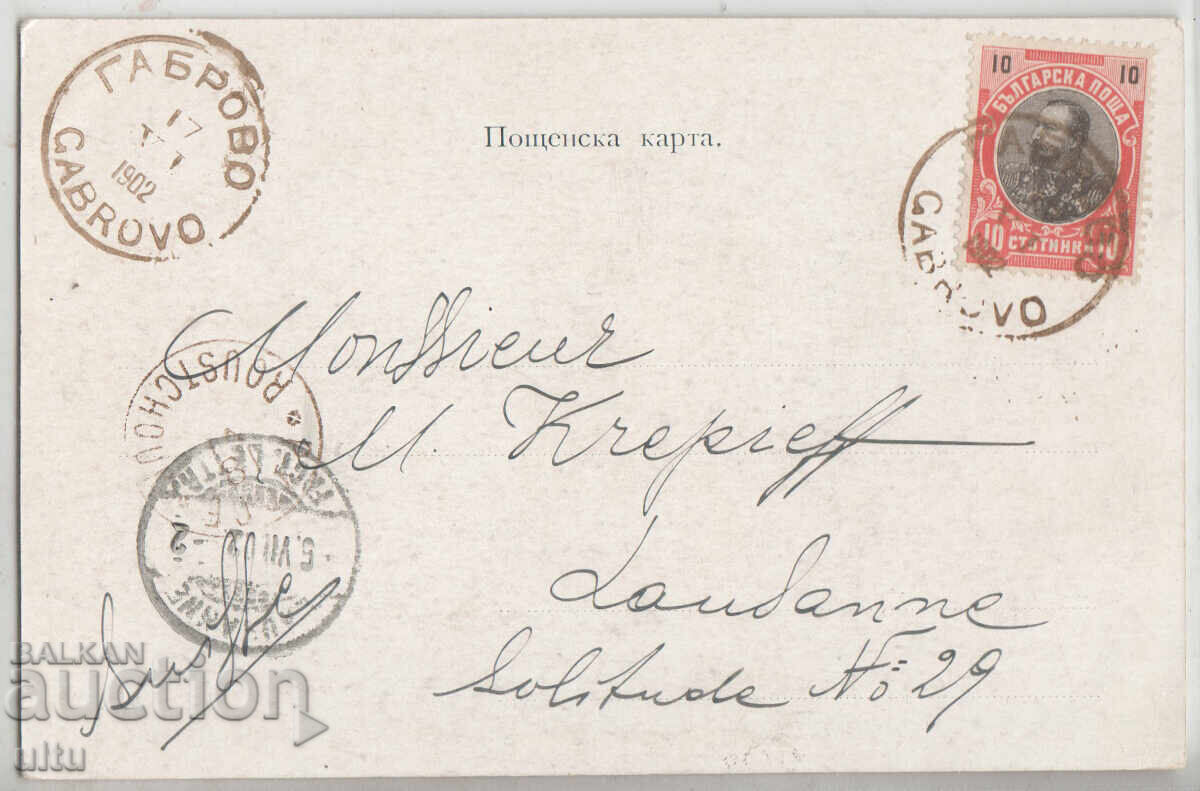 ГАБРОВО
17
VI
1902
GABROVO
Пощенска карта.
10 10
БЪЛГАРСКА ПОЩА
10 СТОТИНКИ 10
GABROVO
Monssieur
M. Krepieff
Lausanne
Solitude No 29
Suisse
ROUSTCHOU
5.VII.02 - 2
BALKAN
auction
ultu